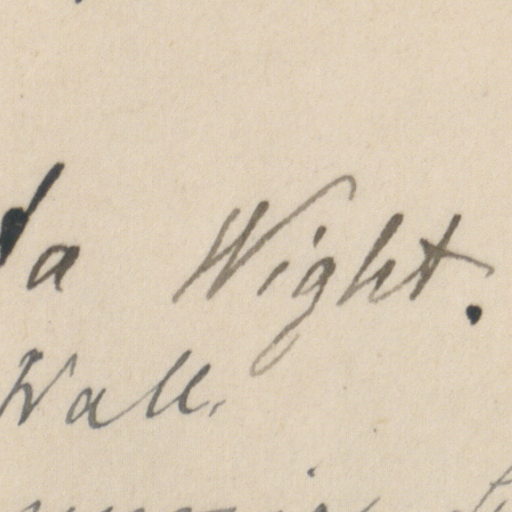 da Wight.
Wall.